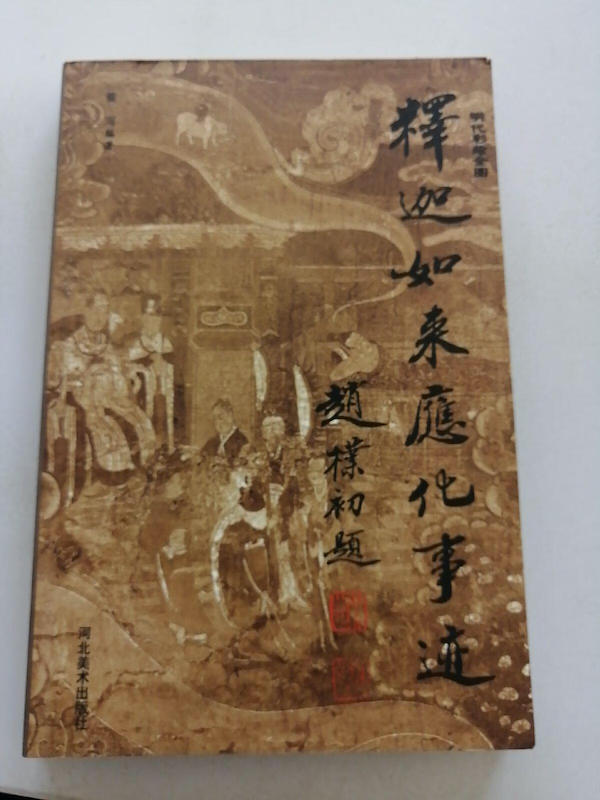 明代彩绘全图
釋迦如来應化事迹
趙樸初題
编著
河北美术出版社